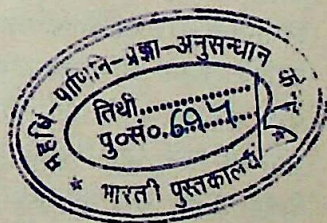 महर्षि-पाणिनि-प्रज्ञा-अनुसन्धान के
तिथी..............
पु०सं०.
* भारती पुस्तकालय